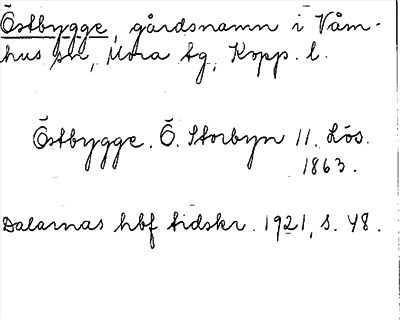 Östbygge, gårdsnamn i Våm-
hus sn, Mora tg, Kopp. l.
Östbygge. Ö. Storbyn 11. Lös.
1863.
Dalarnas hbf tidskr. 1921, s. 48.